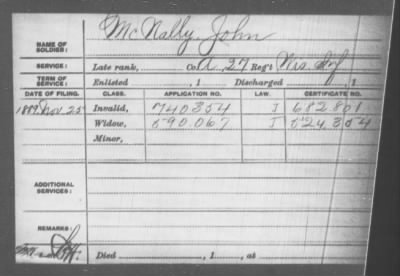 NAME OF SOLDIER: McNally, John
SERVICE: Late rank, Co. A, 27 Reg't Wis. Inf
TERM OF SERVICE: Enlisted , 1 Discharged , 1
DATE OF FILING. CLASS. APPLICATION NO. LAW. CERTIFICATE NO.
1889 Nov. 25 Invalid, 740354 J 682.801
Widow, 590.067 J 524.354
Minor,
ADDITIONAL SERVICES:
REMARKS:
Died , 1 , at